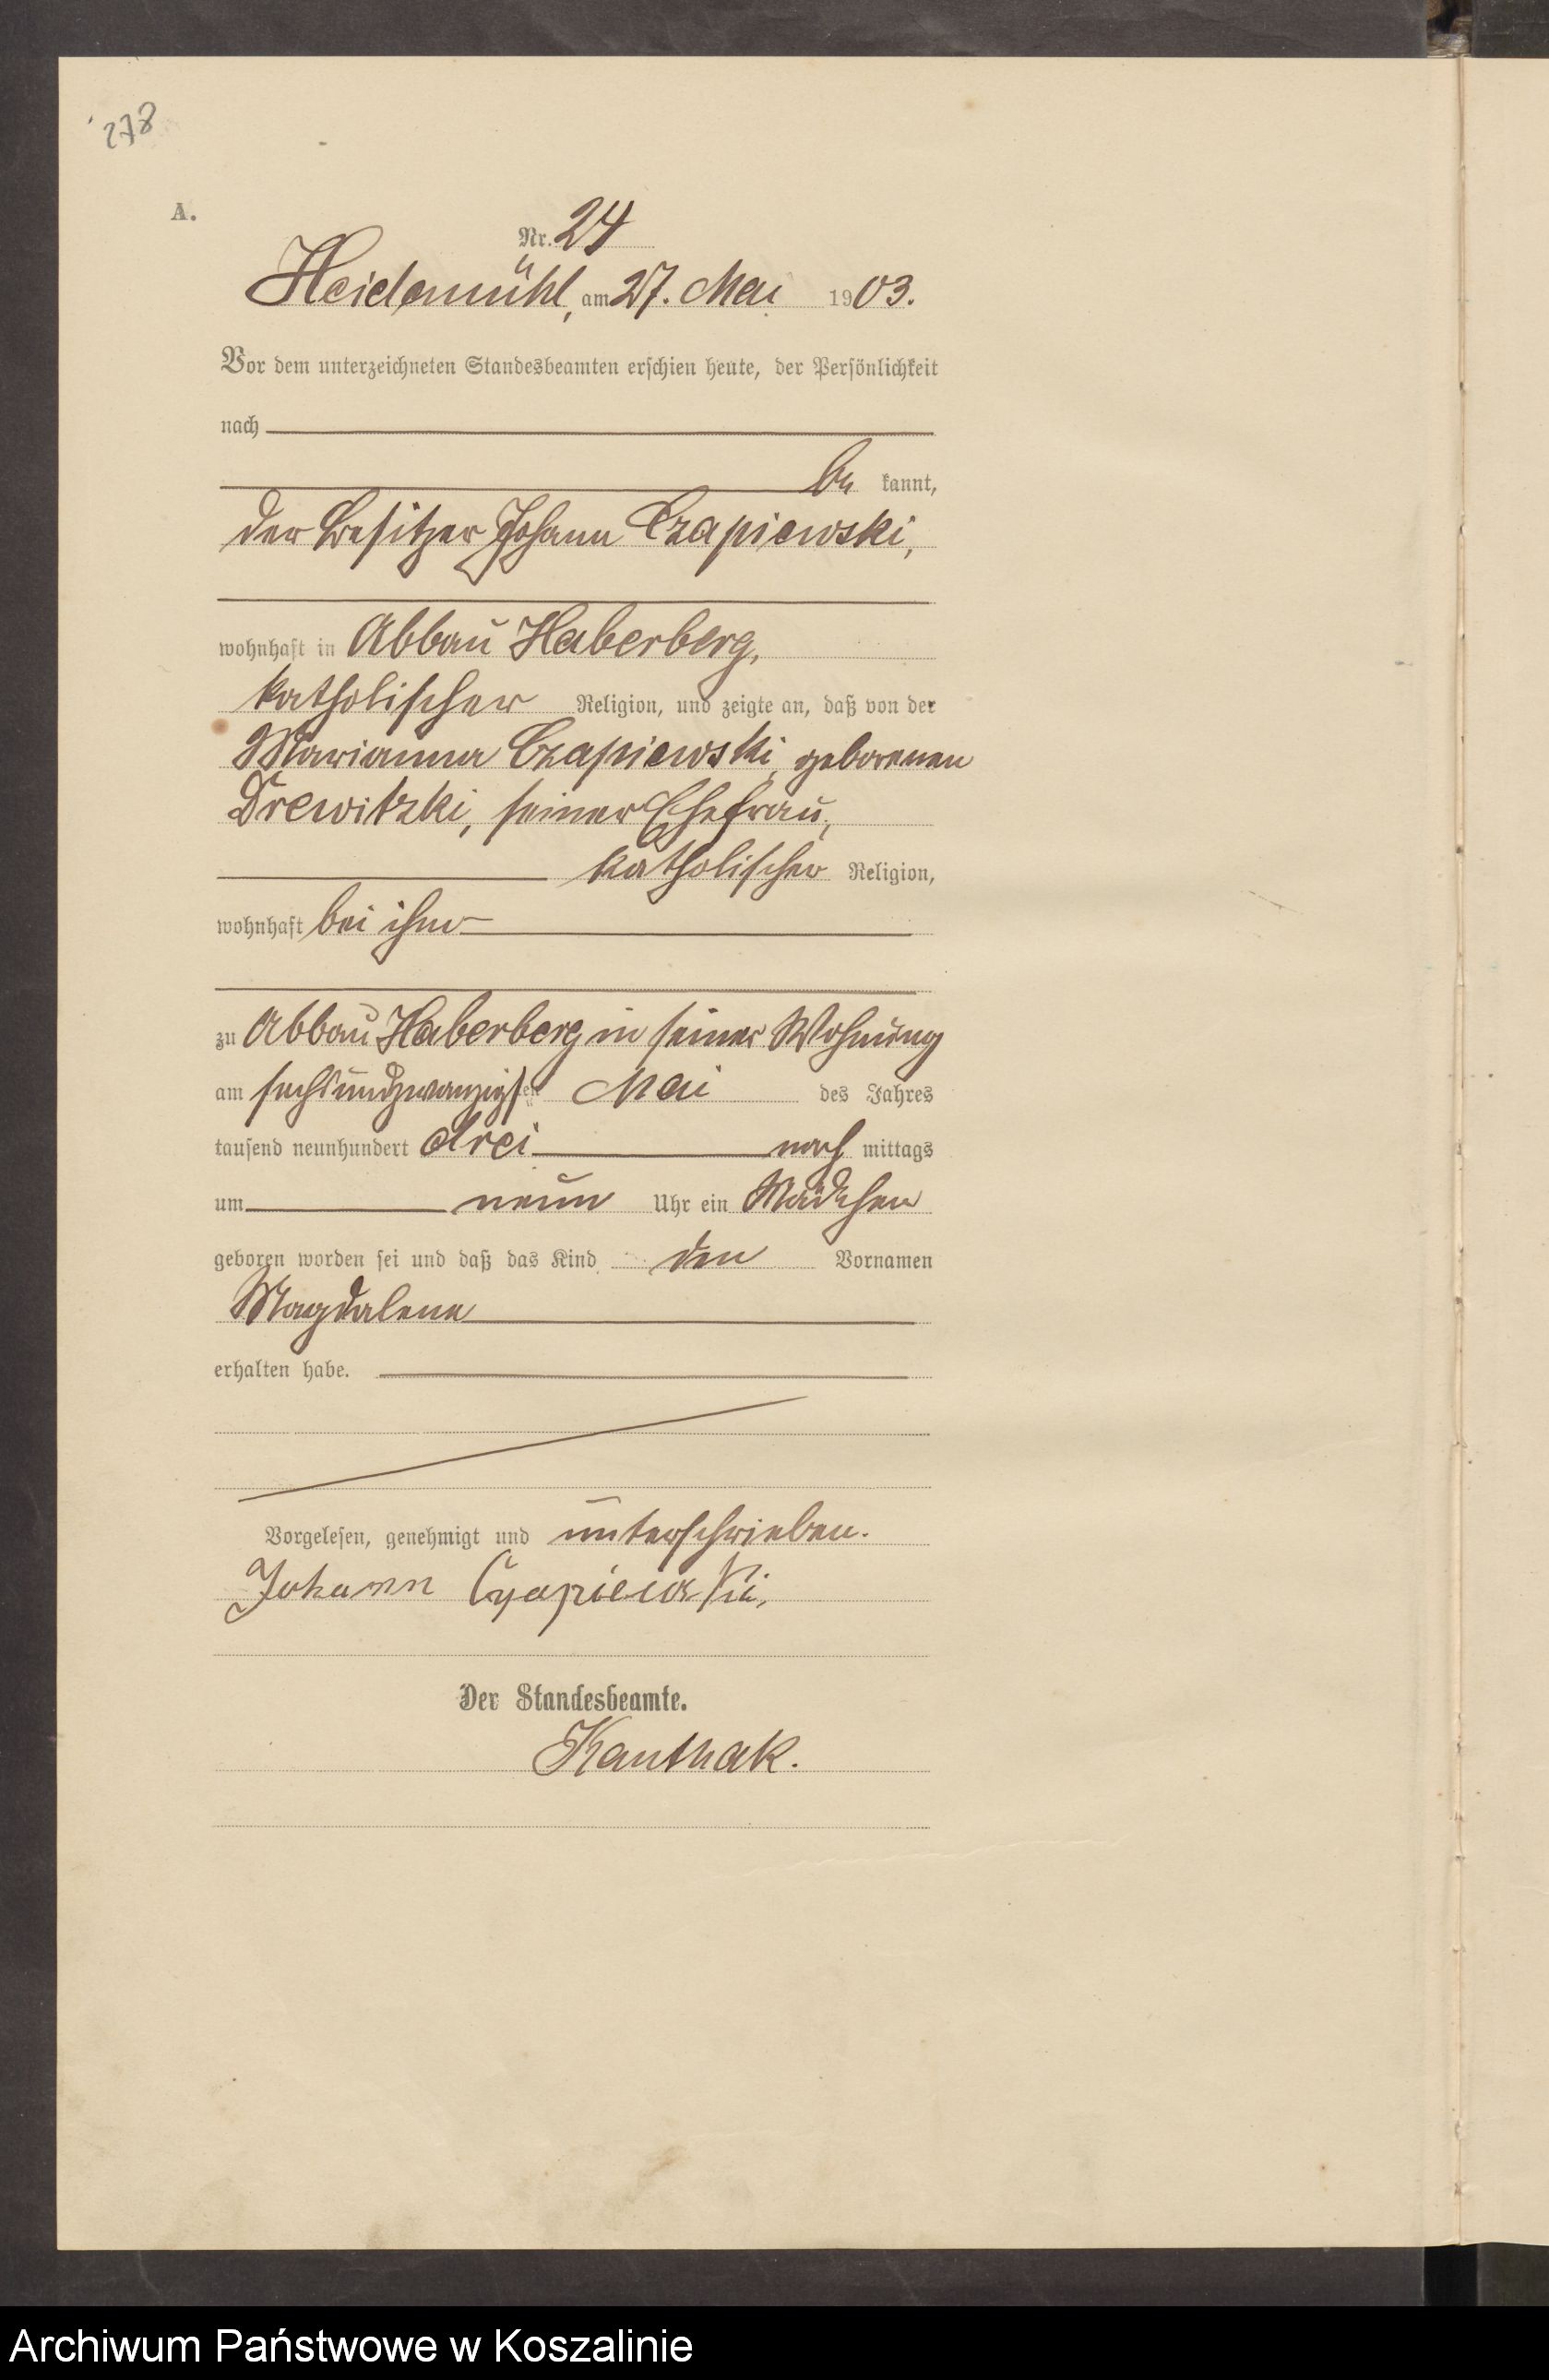 278
A.
Nr. 24
Heidemühl, am 27. Mai 1903.
Vor dem unterzeichneten Standesbeamten erschien heute, der Persönlichkeit
nach
be kannt,
der Besitzer Johann Czapiewski,
wohnhaft in Abbau Haberberg,
katholischer Religion, und zeigte an, daß von der
Marianna Czapiewski, geborenen
Drewitzki, seiner Ehefrau,
katholischer Religion,
wohnhaft bei ihm
zu Abbau Haberberg in seiner Wohnung
am sechsundzwanzigsten Mai des Jahres
tausend neunhundert drei nach mittags
um neun Uhr ein Mädchen
geboren worden sei und daß das Kind den Vornamen
Magdalena
erhalten habe.
Vorgelesen, genehmigt und unterschrieben.
Johann Czapiewski,
Der Standesbeamte.
Kanthak.
Archiwum Państwowe w Koszalinie